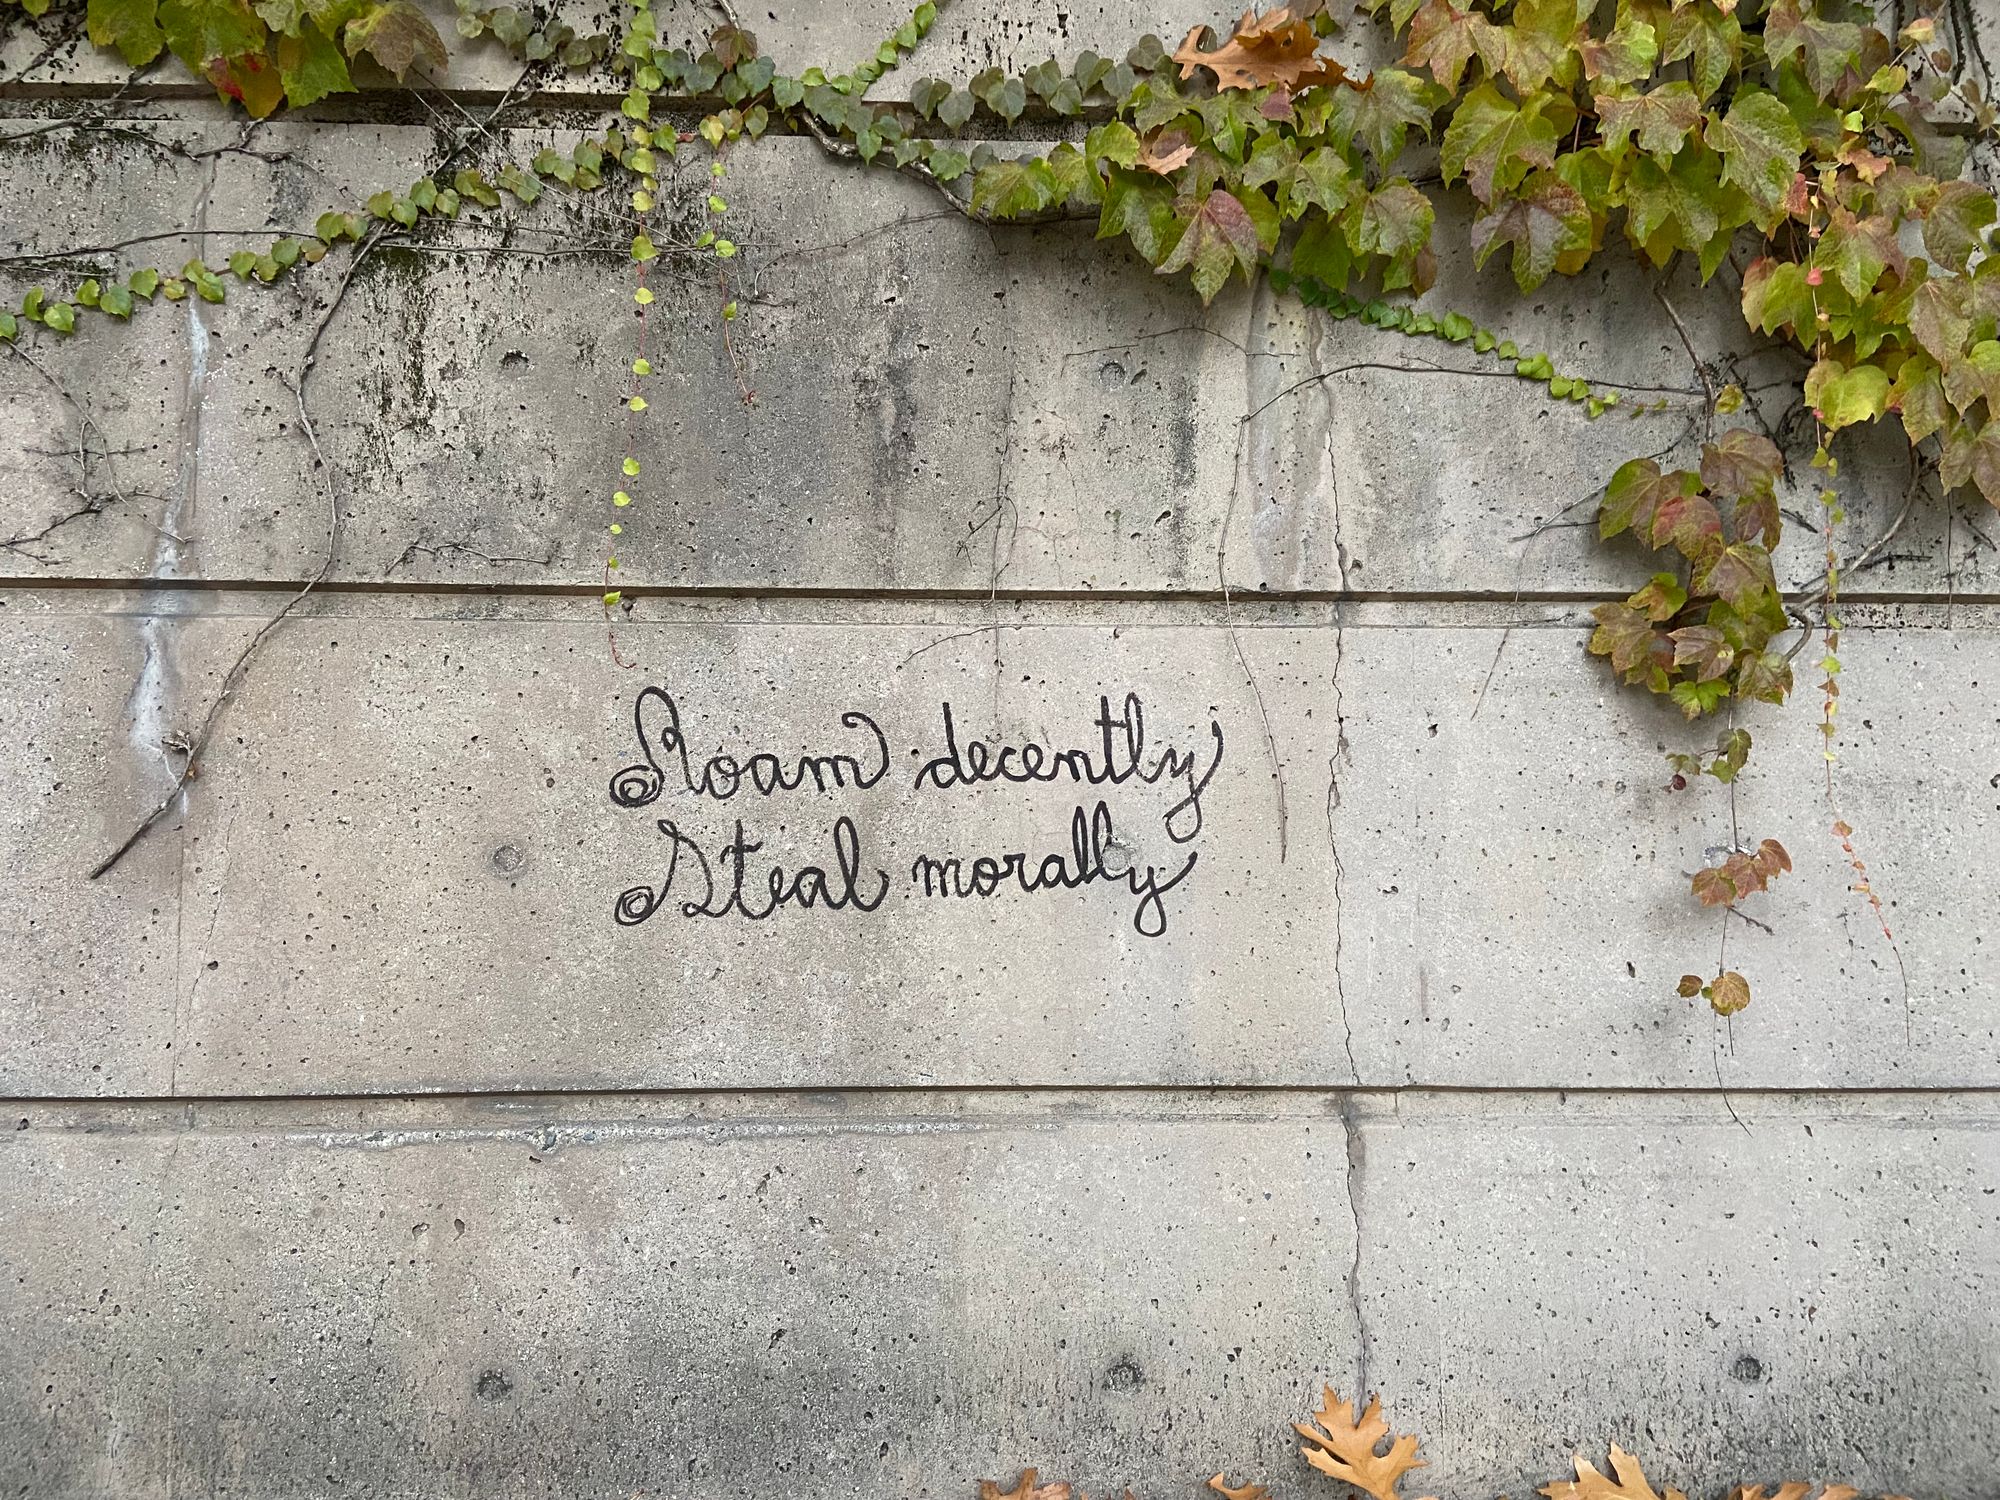 Roam decently
Steal morally